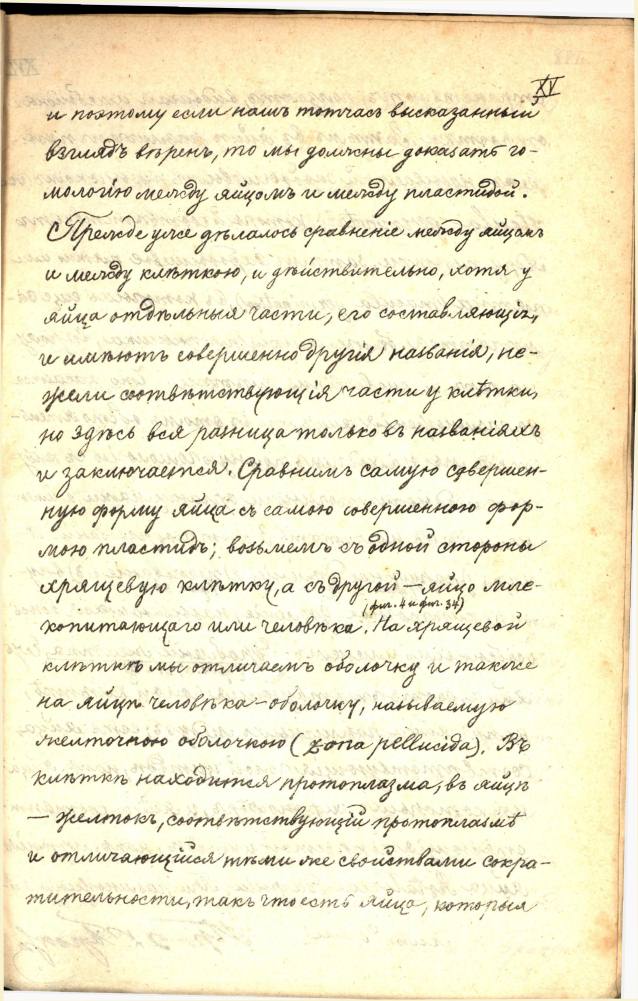 XV
и поэтому если нашъ тотчасъ высказанный
взглядъ вѣренъ, то мы должны доказать го-
мологію между яйцомъ и между пластидой.
Прежде уже дѣлалось сравненіе между яйцомъ
и между клѣткою, и дѣйствительно, хотя у
яйца отдѣльныя части, его составляющія,
и имѣютъ совершенно другія названія, не-
жели соотвѣтствующія части у клѣтки,
но здѣсь вся разница только въ названіяхъ
и заключается. Сравнимъ самую совершен-
ную форму яйца съ самою совершенною фор-
мою пластидъ; возьмемъ съ одной стороны
хрящевую клѣтку, а съ другой — яйцо мле-
(фиг. 4 и фиг. 34)
копитающаго или человѣка. На хрящевой
клѣткѣ мы отличаемъ оболочку и также
на яйцѣ человѣка – оболочку, называемую
желточною оболочкою (zona pellucida). Въ
клѣткѣ находится протоплазма, въ яйцѣ
— желтокъ, соотвѣтствующій протоплазмѣ
и отличающійся тѣми же свойствами сокра-
тительности, такъ что есть яйца, которыя